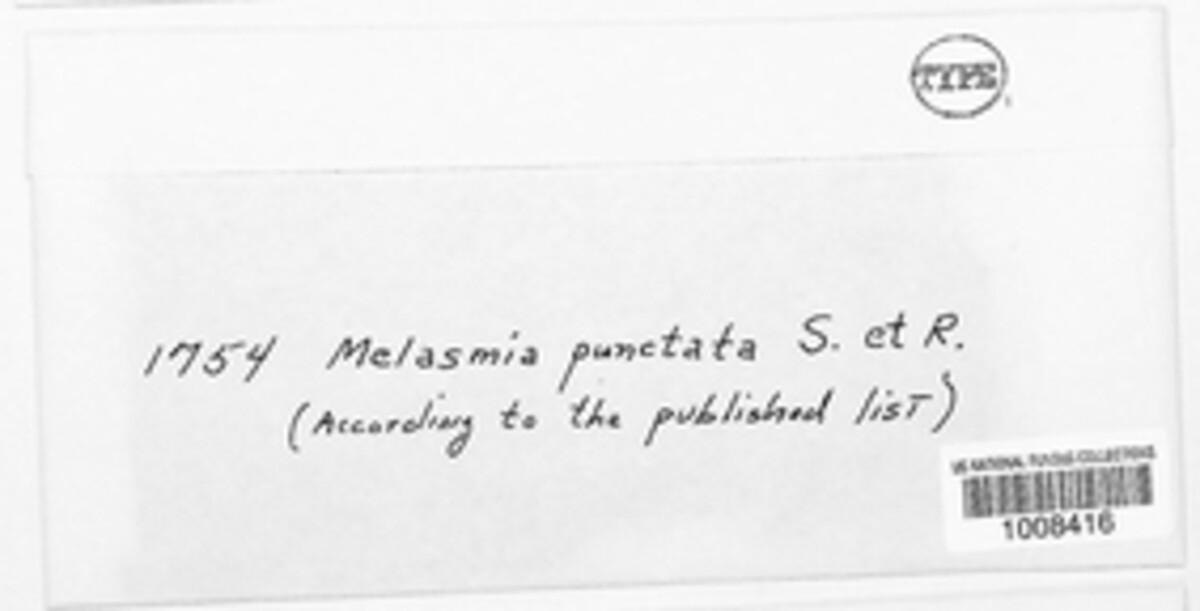 TYPE
1754 Melasmia punctata S. et R.
(According to the published list)
US NATIONAL FUNGUS COLLECTIONS
1008416